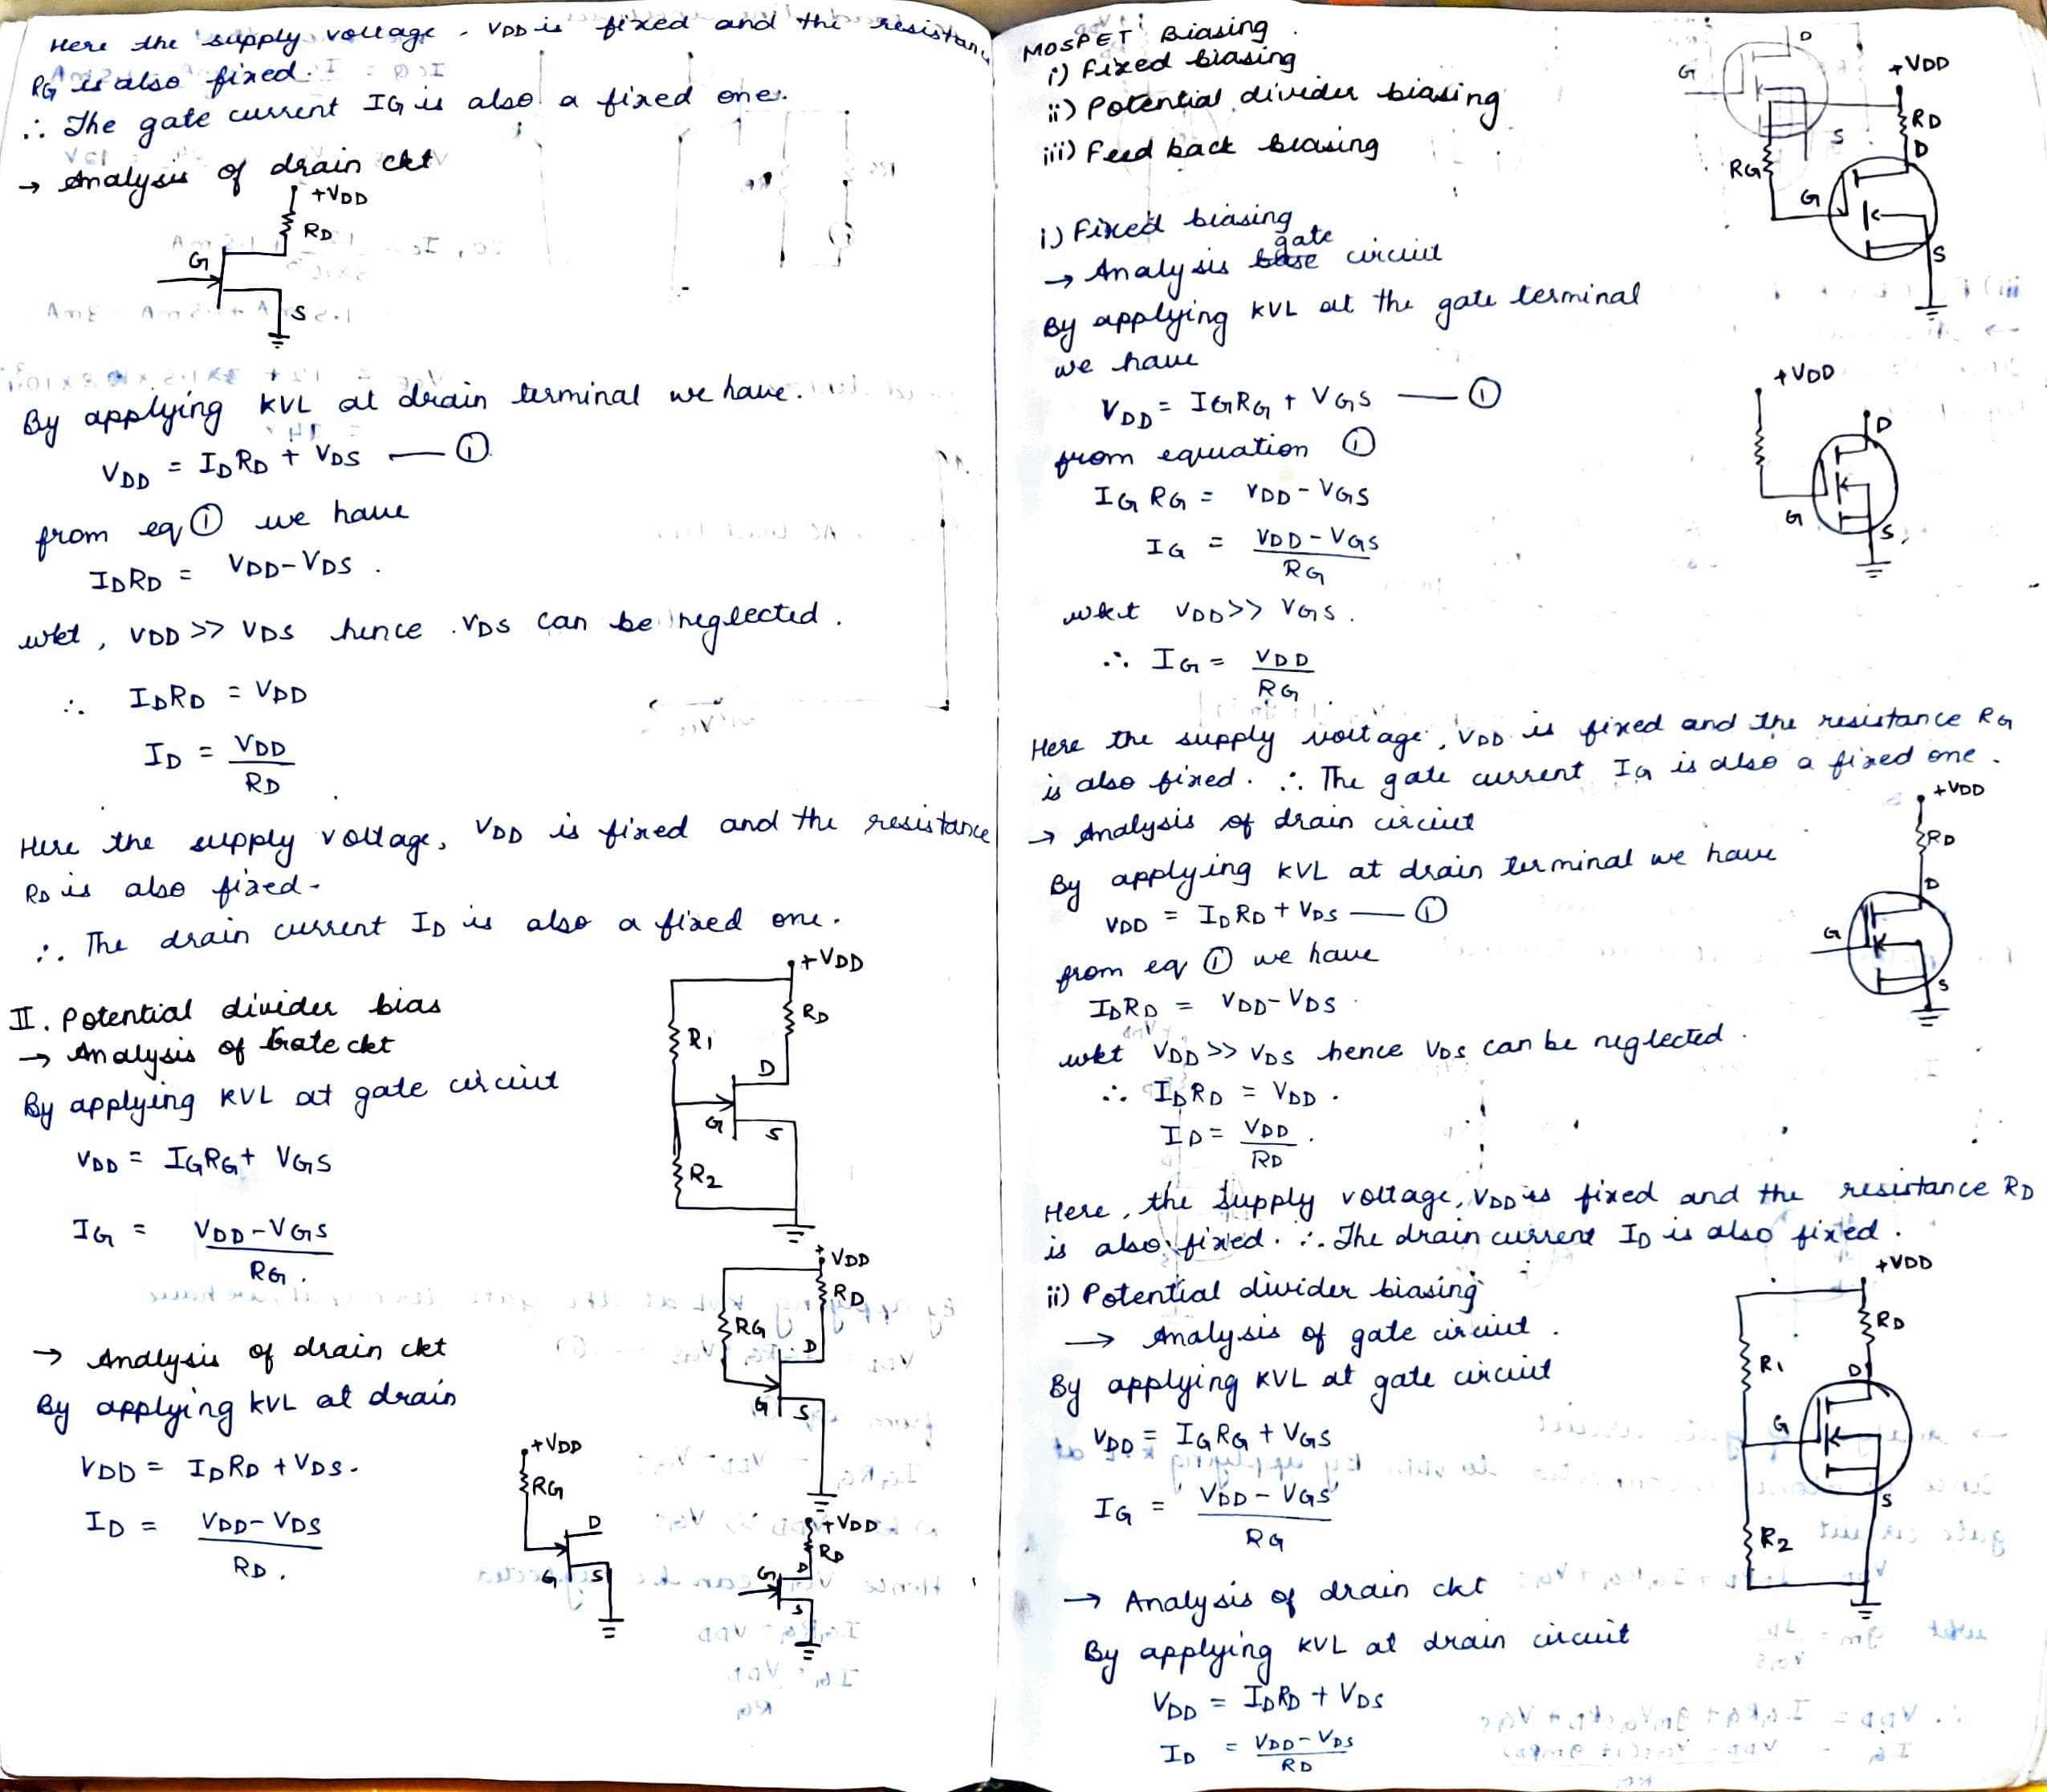 Here the supply voltage, VDD is fixed and the
RG is also fixed.
∴ The gate current IG is also a fixed one.
→ Analysis of drain ckt
+VDD
RD
G
S
By applying KVL at drain terminal we have.
VDD = IDRD + VDS — ①
from eq ① we have
IDRD = VDD-VDS .
wkt, VDD >> VDS hence VDS can be neglected.
∴ IDRD = VDD
ID = VDD
RD
Here the supply voltage, VDD is fixed and the resistance
RD is also fixed.
∴ The drain current ID is also a fixed one.
II. Potential divider bias
→ Analysis of Gate ckt
By applying KVL at gate circuit
VDD = IGRG+ VGS
IG = VDD-VGS
RG .
+VDD
RD
R1
D
G
S
R2
→ Analysis of drain ckt
By applying KVL at drain
VDD = IDRD +VDS.
ID = VDD-VDS
RD .
+VDD
RD
RG
D
G S
+VDD
RG
D
G S
+VDD
RD
G D
S
MOSFET Biasing
i) Fixed biasing
ii) Potential divider biasing
iii) Feed back biasing
D
G
S
+VDD
RD
D
RG
G
S
i) Fixed biasing
gate
→ Analysis base circuit
By applying KVL at the gate terminal
we have
VDD = IGRG + VGS — ①
from equation ①
IG RG = VDD-VGS
IG = VDD-VGS
RG
wkt VDD>> VGS.
∴ IG = VDD
RG .
+VDD
D
G
S
Here the supply voltage, VDD is fixed and the resistance RG
is also fixed. ∴ The gate current IG is also a fixed one.
→ Analysis of drain circuit
By applying KVL at drain terminal we have
VDD = IDRD + VDS — ①
from eq ① we have
IDRD = VDD-VDS
wkt VDD >> VDS hence VDS can be neglected.
∴ IDRD = VDD .
ID = VDD .
RD
+VDD
RD
D
G
S
Here, the supply voltage, VDD is fixed and the resistance RD
is also fixed. ∴ The drain current ID is also fixed.
ii) Potential divider biasing
→ Analysis of gate circuit.
By applying KVL at gate circuit
VDD = IGRG + VGS
IG = VDD - VGS
RG
+VDD
RD
R1
D
G
S
R2
→ Analysis of drain ckt
By applying KVL at drain circuit
VDD = IDRD + VDS
ID = VDD-VDS
RD